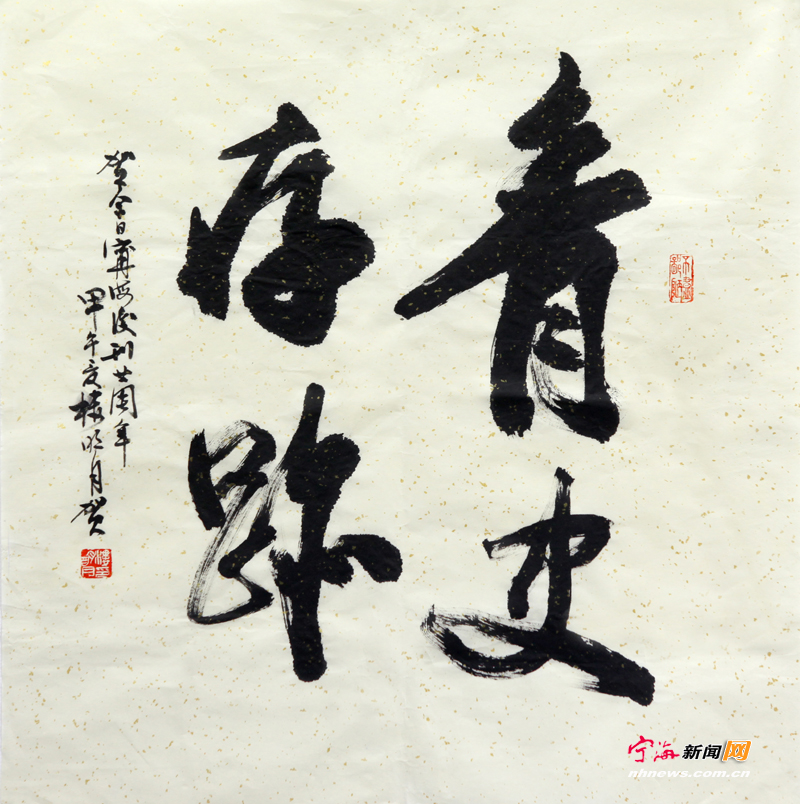 青史
存跡
贺今日寧海復刊廿周年
甲午夏楼明月贺
宁海新闻网
nhnews.com.cn